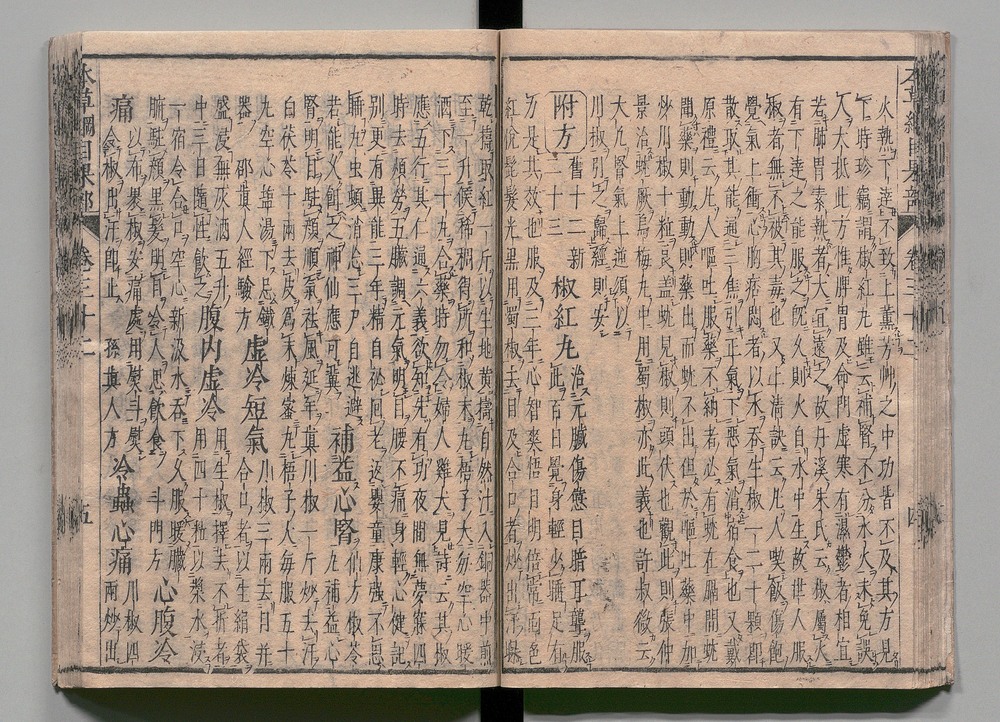 火熱下達不致上薰芳艸之中功皆不及其方見
下時珍竊謂椒紅丸雖云補腎不分水火未免誤
人大抵此方惟脾胃及命門虛寒有濕鬱者相宜
若肺胃素熱者大宜遠之故丹溪朱氏云椒屬火
有下達之能服之既久則火自水中生故世人服
椒者無不被其毒也又上清訣云凡人喫飯傷飽
覺氣上衝心胸痞悶者以水吞生椒一二十顆即
散取其能通三焦引正氣下惡氣消宿食也又戴
原禮云凡人嘔吐服藥不納者必有蚘在膈間蚘
聞藥則動動則藥出而蚘不出但於嘔吐藥中加
炒川椒十粒良蓋蚘見椒則頭伏也觀此則張仲
景治蚘厥烏梅丸中用蜀椒亦此義也許叔微云
大凡腎氣上逆須以
川椒引之歸經則安
附方 舊十二新二十三 椒紅丸 治元臟傷憊目暗耳聾服
此百日覺身輕少睡足有
力是其效也服及三年心智爽悟目明倍常面色
紅悅髭髮光黑用蜀椒去目及合口者炒出汗曝
乾搗取紅一斤以生地黃搗自然汁入銅器中煎
至一升候稀稠得所和椒末丸梧子大每空心暖
酒下三十丸合藥時勿令婦人雞犬見詩云其椒
應五行其仁通六義欲知先有功夜間無夢寐四
時去煩勞五臟調元氣明目腰不痛身輕心健記
別更有異能三年精自祕回老返嬰童康強不思
睡九虫頓消亡三尸自逃避
若能久餌之神仙應可冀 補益心腎 仙方椒苓
丸補益心
腎明目駐顏順氣祛風延年真川椒一斤炒去汗
白茯苓十兩去皮為末煉蜜丸梧子大每服五十
丸空心鹽湯下忌鐵
器 邵真人經驗方 虛冷短氣 川椒三兩去目并
合口者以生絹袋
盛浸無灰酒五升
中三日隨性飲之 腹内虛冷 用生椒擇去不拆者
用四十粒以漿水浸
一宿令合口空心新汲水吞下久服暖臟
腑駐顏黑髮明目令人思飲食 斗門方 心腹冷
痛 以布裹椒安痛處用熨斗熨
令椒出汗即止 孫真人方 冷蟲心痛 川椒四
兩炒出
本草綱目果部 卷三十二 五
四